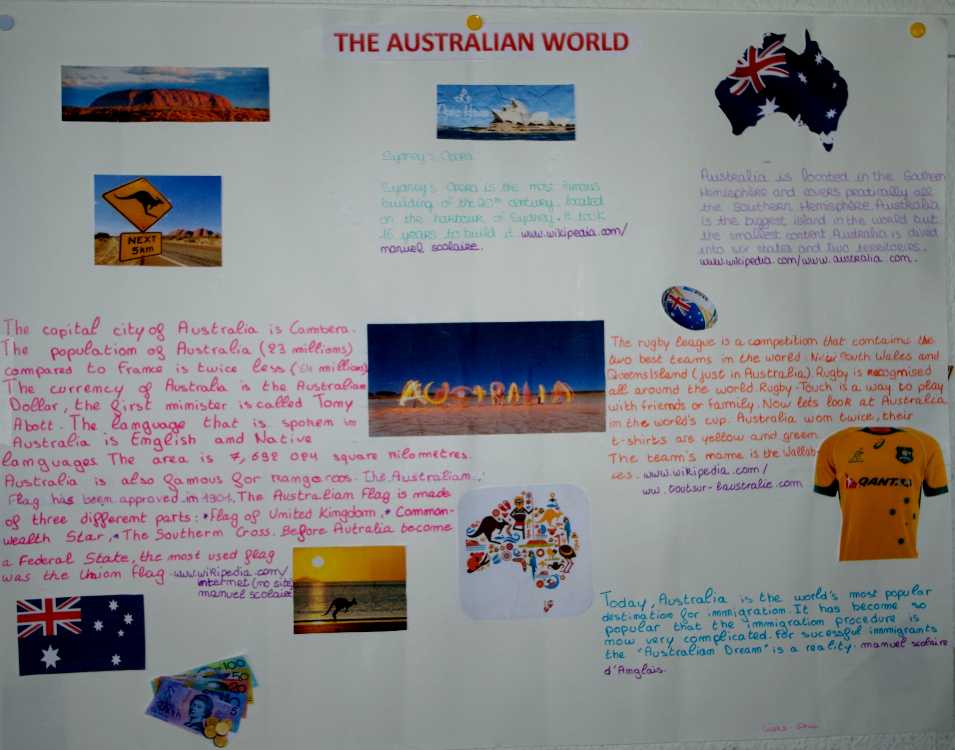 THE AUSTRALIAN WORLD
NEXT
5km
Sydney's Opera
Sydney's Opera is the most famous
building of the 20th century. located
on the harbour of Sydney. It took
16 years to build it. www.wikipedia.com/
manuel scolaire.
Australia is located in the Southern
Hemisphere and covers pratically all
the Southern Hemisphere. Australia
is the biggest island in the world but
the smallest content Australia is divied
into six states and two territories.
www.wikipedia.com/www.australia.com.
The capital city of Australia is Cambera.
The population of Australia (23 millions)
compared to France is twice less (64 millions)
The currency of Australa is the Australian
Dollar, the first minister is called Tomy
Abott. The language that is spoken in
Australia is English and Native
languages. The area is 7,692 024 square kilometres.
Australia is also famous for kangaroos. The Australian
Flag has been approved in 1901. The Australian Flag is made
of three different parts: *Flag of United Kingdom,* Common-
wealth Star,*The Southern Cross. Before Autralia become
a Federal State, the most used flag
was the Union Flag. www.wikipedia.com/
internet (no site)
manuel scolaire
AUSTRALIA
The rugby league is a competition that contains the
two best teams in the world. New South Wales and
QueensIsland (just in Australia). Rugby is recognised
all around the world. Rugby-Touch is a way to play
with friends or family. Now lets look at Australia
in the world's cup. Australia won twice, their
t-shirts are yellow and green.
The team's name is the Wallab-
ies. www.wikipedia.com/
ww.toutsur-laustralie.com
QANTAS
Today, Australia is the world's most popular
destination for immigration. It has become so
popular that the immigration procedure is
now very complicated. For sucessful immigrants
the "Australian Dream" is a reality. manuel scolaire
d'Anglais.